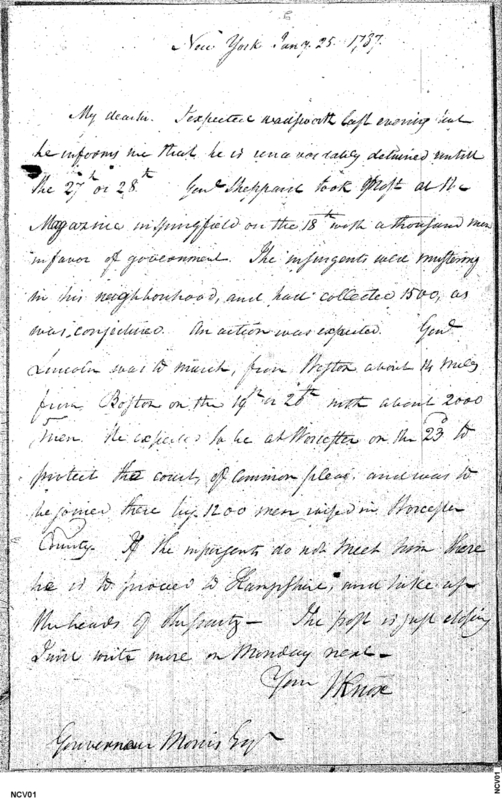 New York Jany. 25. 1787.
My dear sir. I expected wadsworth last evening but
he informs me that he is unavoidably detained untill
the 27th or 28th Genl. Sheppard took post at the
Magazine in Springfield on the 18th with a thousand men
in favor of government. The insurgents were mustering
in his neighbourhood, and had collected 1500, as
was conjectured. An action was expected. Genl.
Lincoln was to march, from Weston about 14 miles
from Boston on the 19th or 20th with about 2000
men. He expected to be at Worcester on the 23d to
protect the court, of Common pleas, and was to
be joined there by 1200 men raised in Worcester
County. If the insurgents do not meet him there
he is to proceed to Hampshire, and take up
the heads of the party — The post is just closing
I will write more on Monday next —
Your J Knox
Gouverneur Morris Esqr
NCV01
NCV01